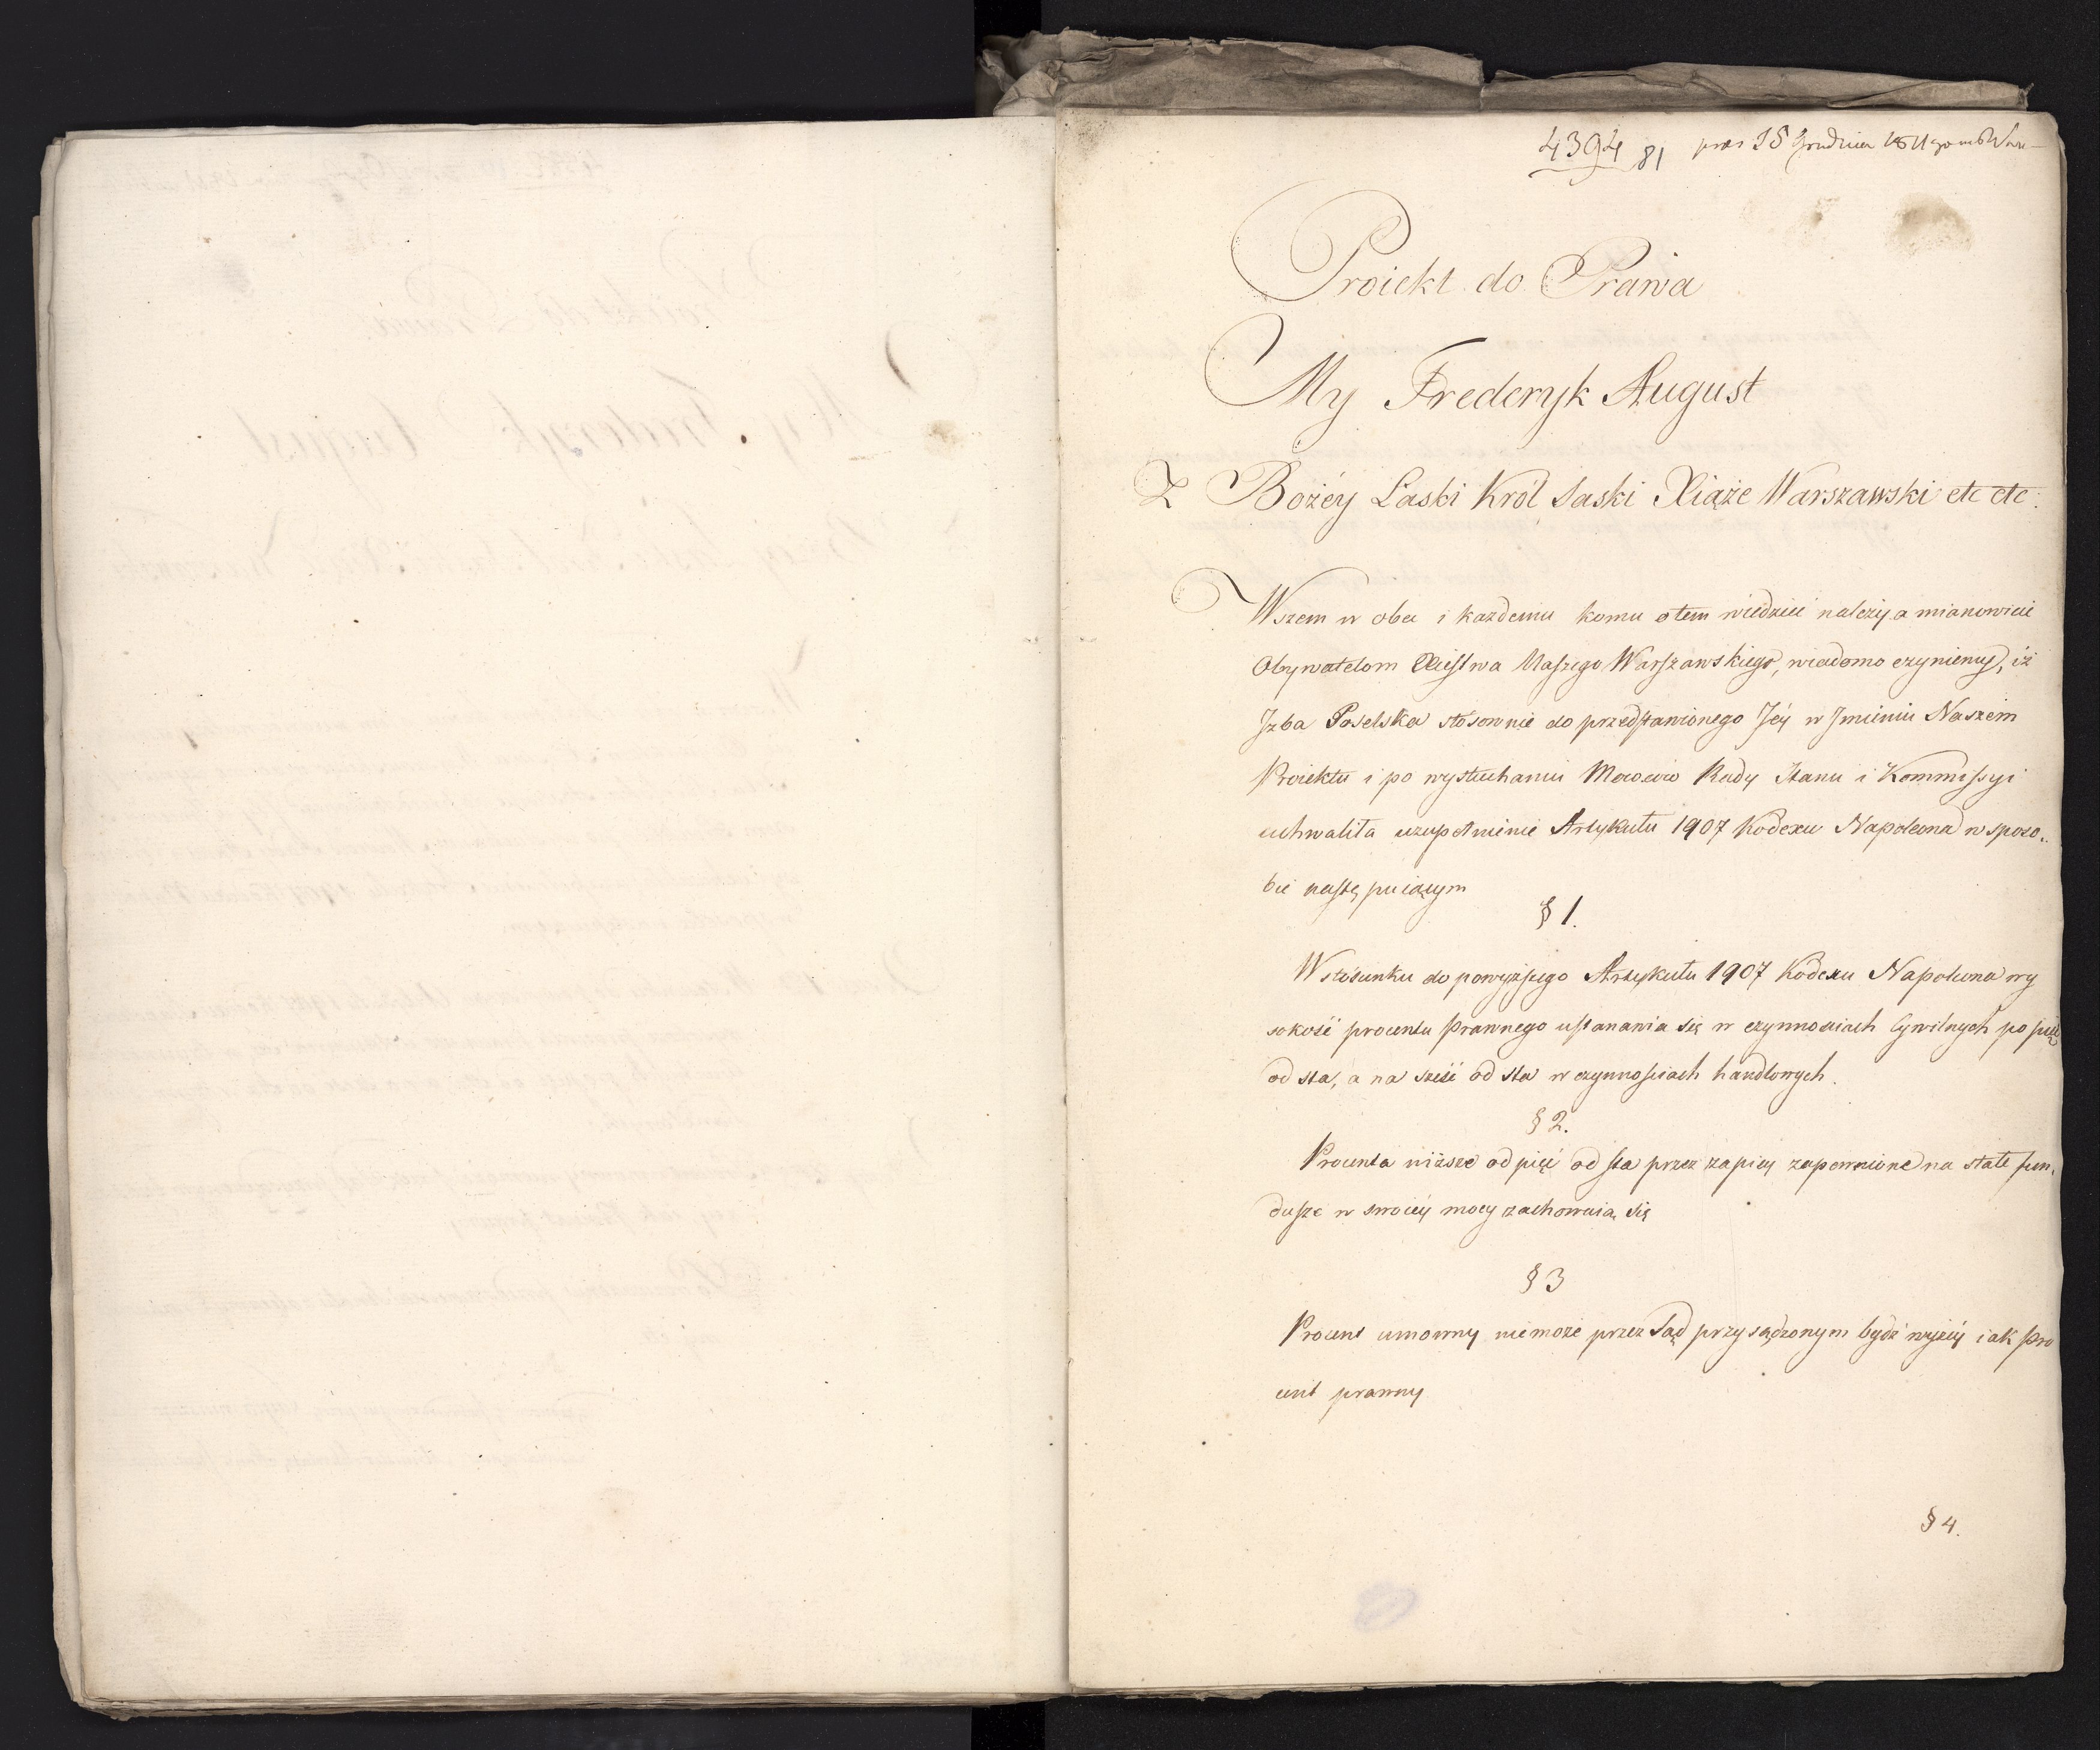 4394 81 pres 15 Grudnia 1811
Proiekt do Prawa
My Frederyk August
Z Bożéy Łaski Król Saski Xiąże Warszawski etc etc:
Wszem w obec i każdemu komu otem wiedzieć należy a mianowicie
Obywatelom Xięstwa Naszego Warszawskiego, wiadomo czyniemy, iż
Izba Poselska stosownie do przedstawionego Jéy w Imieniu Naszém
Proiektu i po wysłuchaniu Mowców Rady Stanu i Kommissyi
uchwaliła uzupełnienie Artykułu 1907 Kodexu Napoleona w sposo„
bie następuiącym
§ 1.
W stosunku do powyższego Artykułu 1907 Kodexu Napoleona wy
sokość procentu prawnego ustanawia się w czynnościach Cywilnych po pięć
od sta, a na sześć od sta w czynnościach handlowych.
§ 2.
Procenta niższe od pięć od sta przez zapisy zapewnione na stałe fun„
dusze w swoiéy mocy zachowuią się
§ 3
Procent umowny nie może przez Sąd przysądzonym bydź wyżéy iak pro
cent prawny
§ 4.